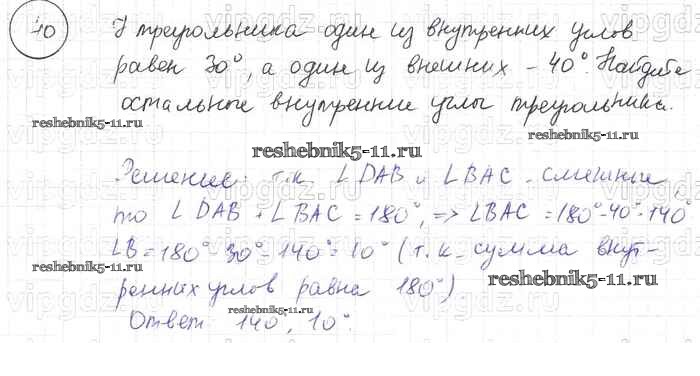 40 У треугольника один из внутренних углов
равен 30°, а один из внешних - 40°. Найдите
остальные внутренние углы треугольника.
reshebnik5-11.ru reshebnik5-11.ru
reshebnik5-11.ru
Решение: т.к ∠DAB и ∠BAC - смежные
то ∠DAB + ∠BAC = 180°, => ∠BAC = 180°-40°=140°
∠B = 180° - 30° - 140° = 10° (т.к. сумма внут-
reshebnik5-11.ru reshebnik5-11.ru
ренних углов равна 180°)
reshebnik5-11.ru
Ответ: 140°, 10°.